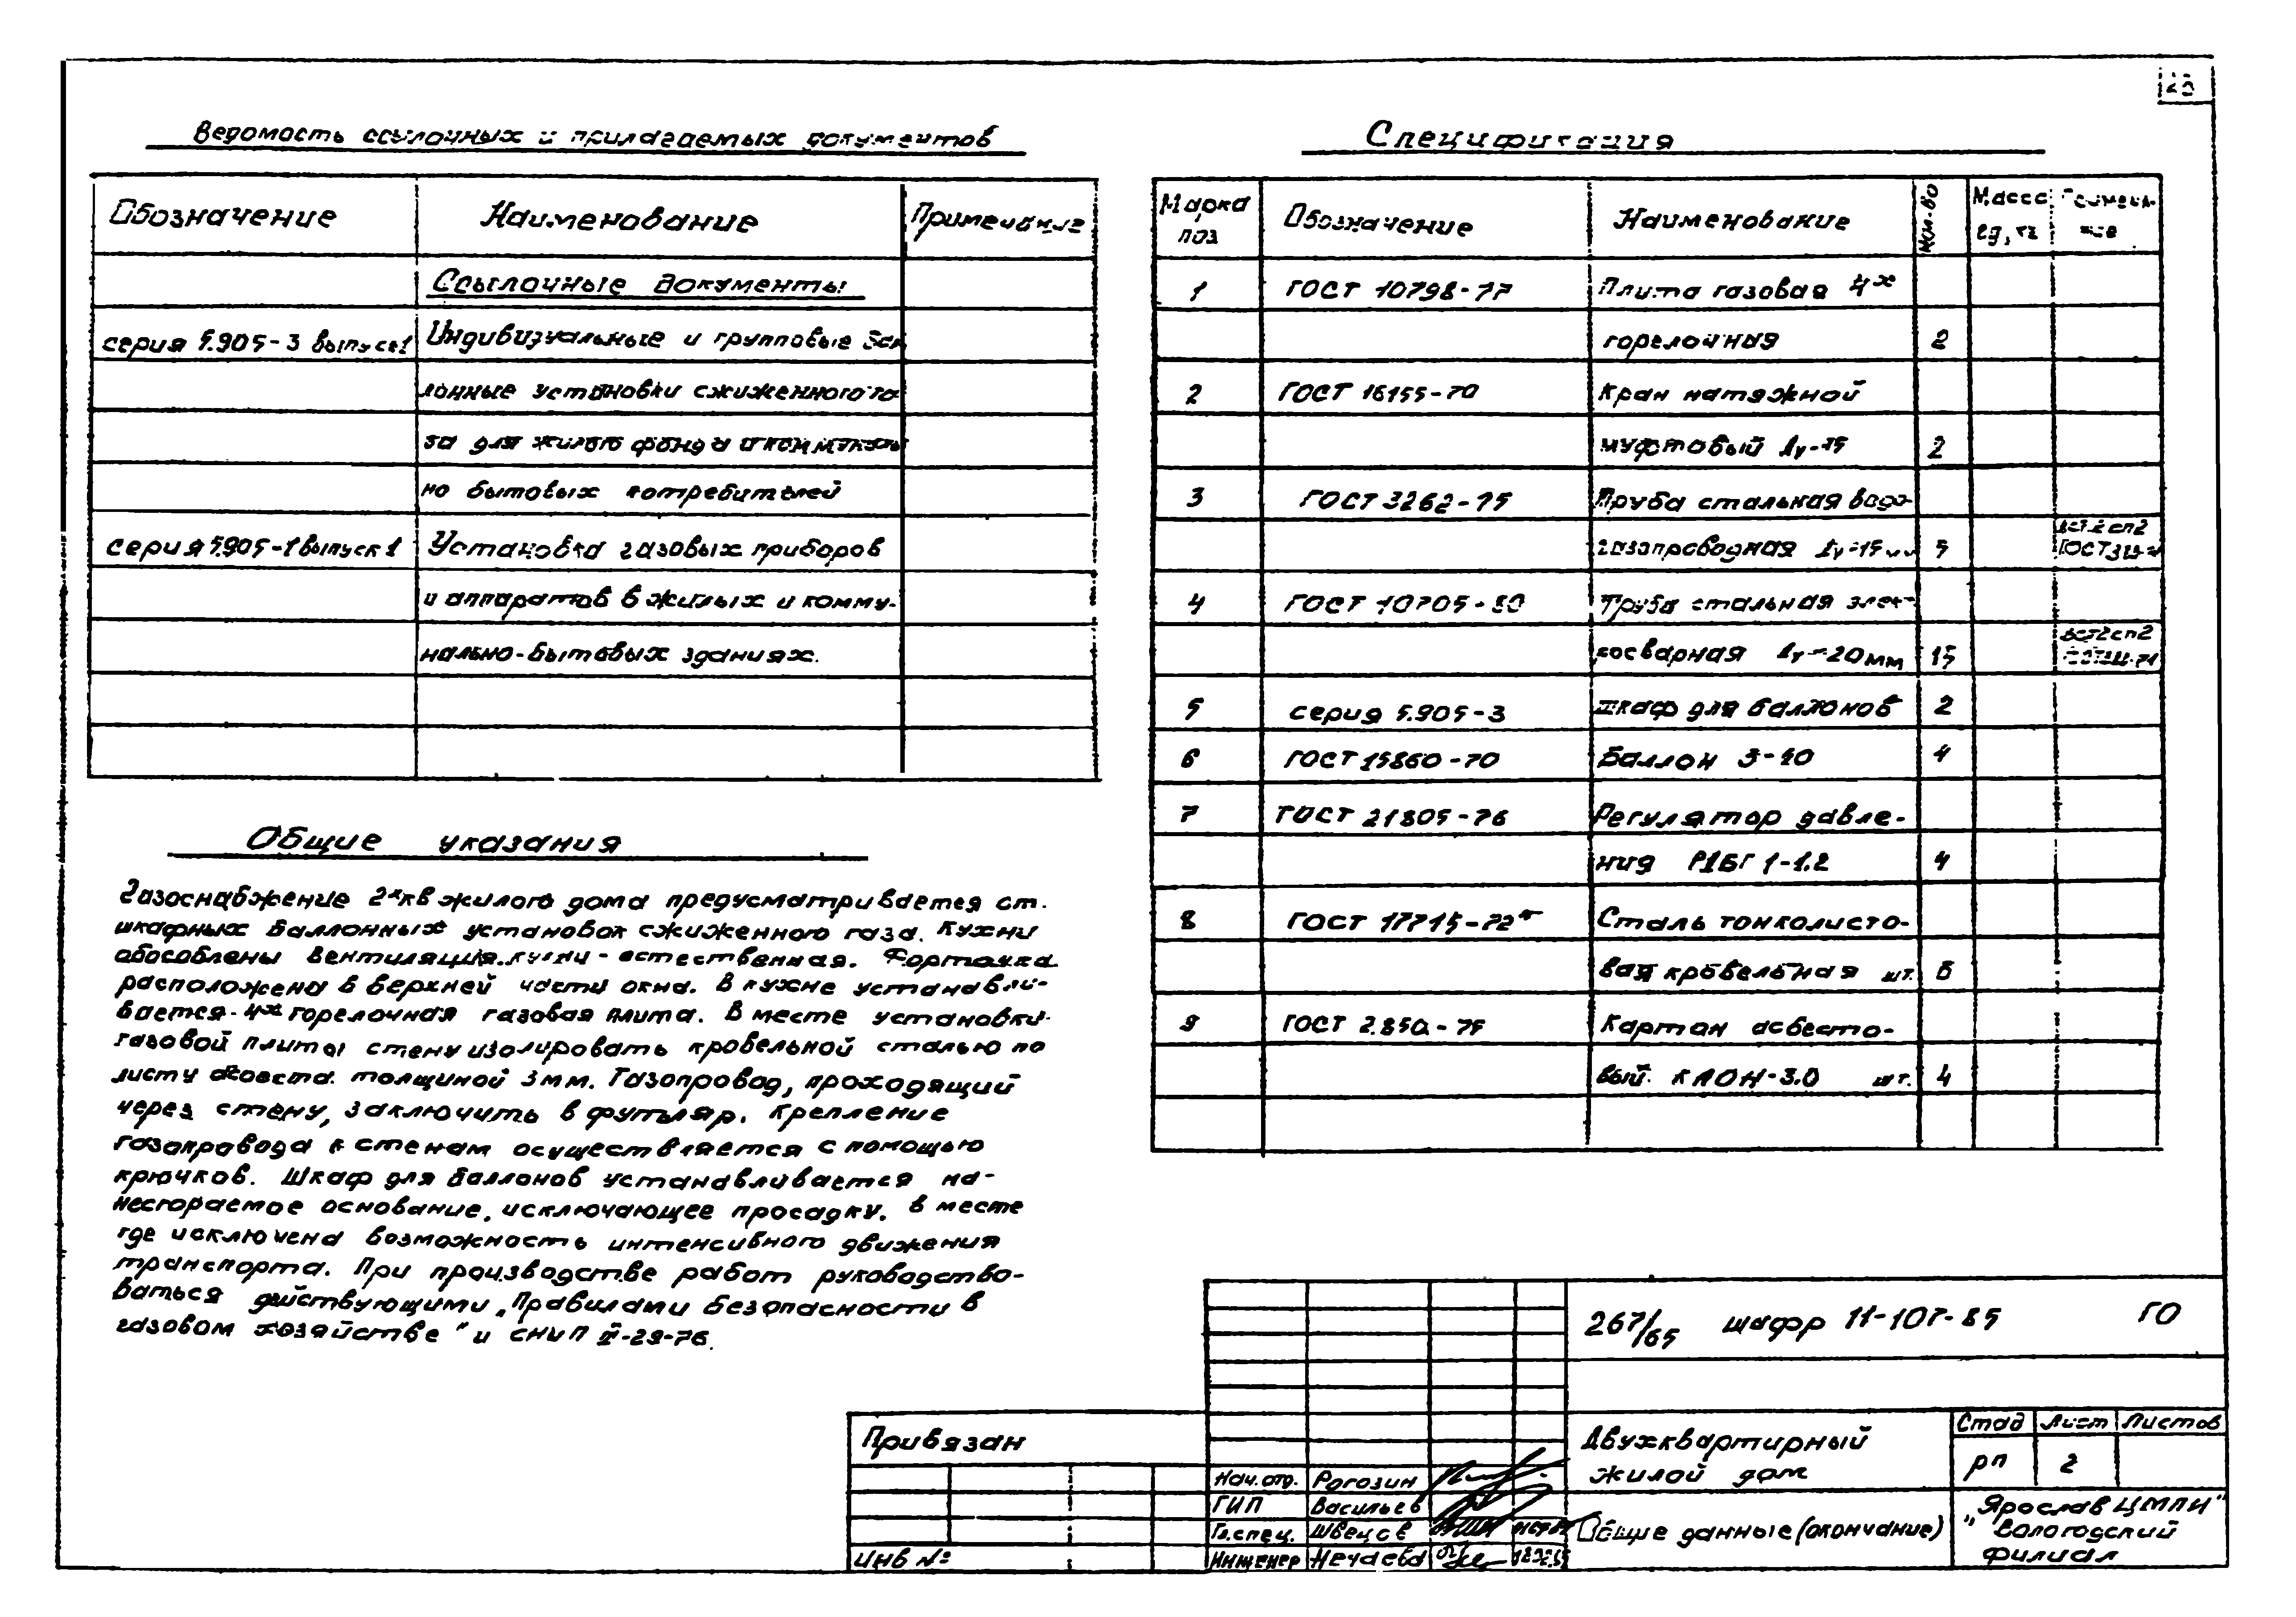 Ведомость ссылочных и прилагаемых документов
Обозначение Наименование Примечание
Ссылочные документы
серия 5.905-3 выпуск 1 Индивидуальные и групповые бал
лонные установки сжиженного га
за для жилого фонда и коммуналь
но бытовых потребителей
серия 5.905-1 выпуск 1 Установка газовых приборов
и аппаратов в жилых и комму-
нально-бытовых зданиях.
Общие указания
Газоснабжение 2х кв жилого дома предусматривается от
шкафных баллонных установок сжиженного газа. Кухни
обособлены вентиляция кухни - естественная. Форточка
расположена в верхней части окна. В кухне устанавли-
вается - 4х горелочная газовая плита. В месте установки
газовой плиты стену изолировать кровельной сталью по
листу толщиной 3мм. Газопровод, проходящий
через стену, заключить в футляр. Крепление
газопровода к стенам осуществляется с помощью
крючков. Шкаф для баллонов устанавливается на-
несгораемое основание, исключающее просадку, в месте
где исключена возможность интенсивного движения
транспорта. При производстве работ руководство-
ваться действующими „Правилами безопасности в
газовом хозяйстве" и СНиП II-29-76.
Спецификация
Марка поз Обозначение Наименование Кол-во Масса ед, кг Примеча- ние
1 ГОСТ 10798-77 Плита газовая 4х
горелочная 2
2 ГОСТ 16155-70 Кран натяжной
муфтовый Ду-15 2
3 ГОСТ 3262-75 Труба стальная водо-
газопроводная Ду-15мм 5 ВСт2сп2
4 ГОСТ 10705-80 Труба стальная элек-
росварная Ду-20мм 15 ВСт2сп2
5 серия 5.905-3 шкаф для баллонов 2
6 ГОСТ 15860-70 Баллон 3-40 4
7 ГОСТ 21805-76 Регулятор давле-
ния РДБГ 1-1.2 4
8 ГОСТ 17715-72* Сталь тонколисто-
вая кровельная шт. 6
9 ГОСТ 2.850-75 Картон асбесто-
вый КАОН-3.0 шт. 4
267/65 шифр 11-107-85 ГО
Привязан
Инв №
Нач. отд. Рогозин
ГИП Васильев
Гл.спец. Швецов
Инженер Нечаева
Двухквартирный
жилой дом
Общие данные (окончание)
Стад Лист Листов
рп 2
"ЯрославЦМПИ"
Вологодский
филиал